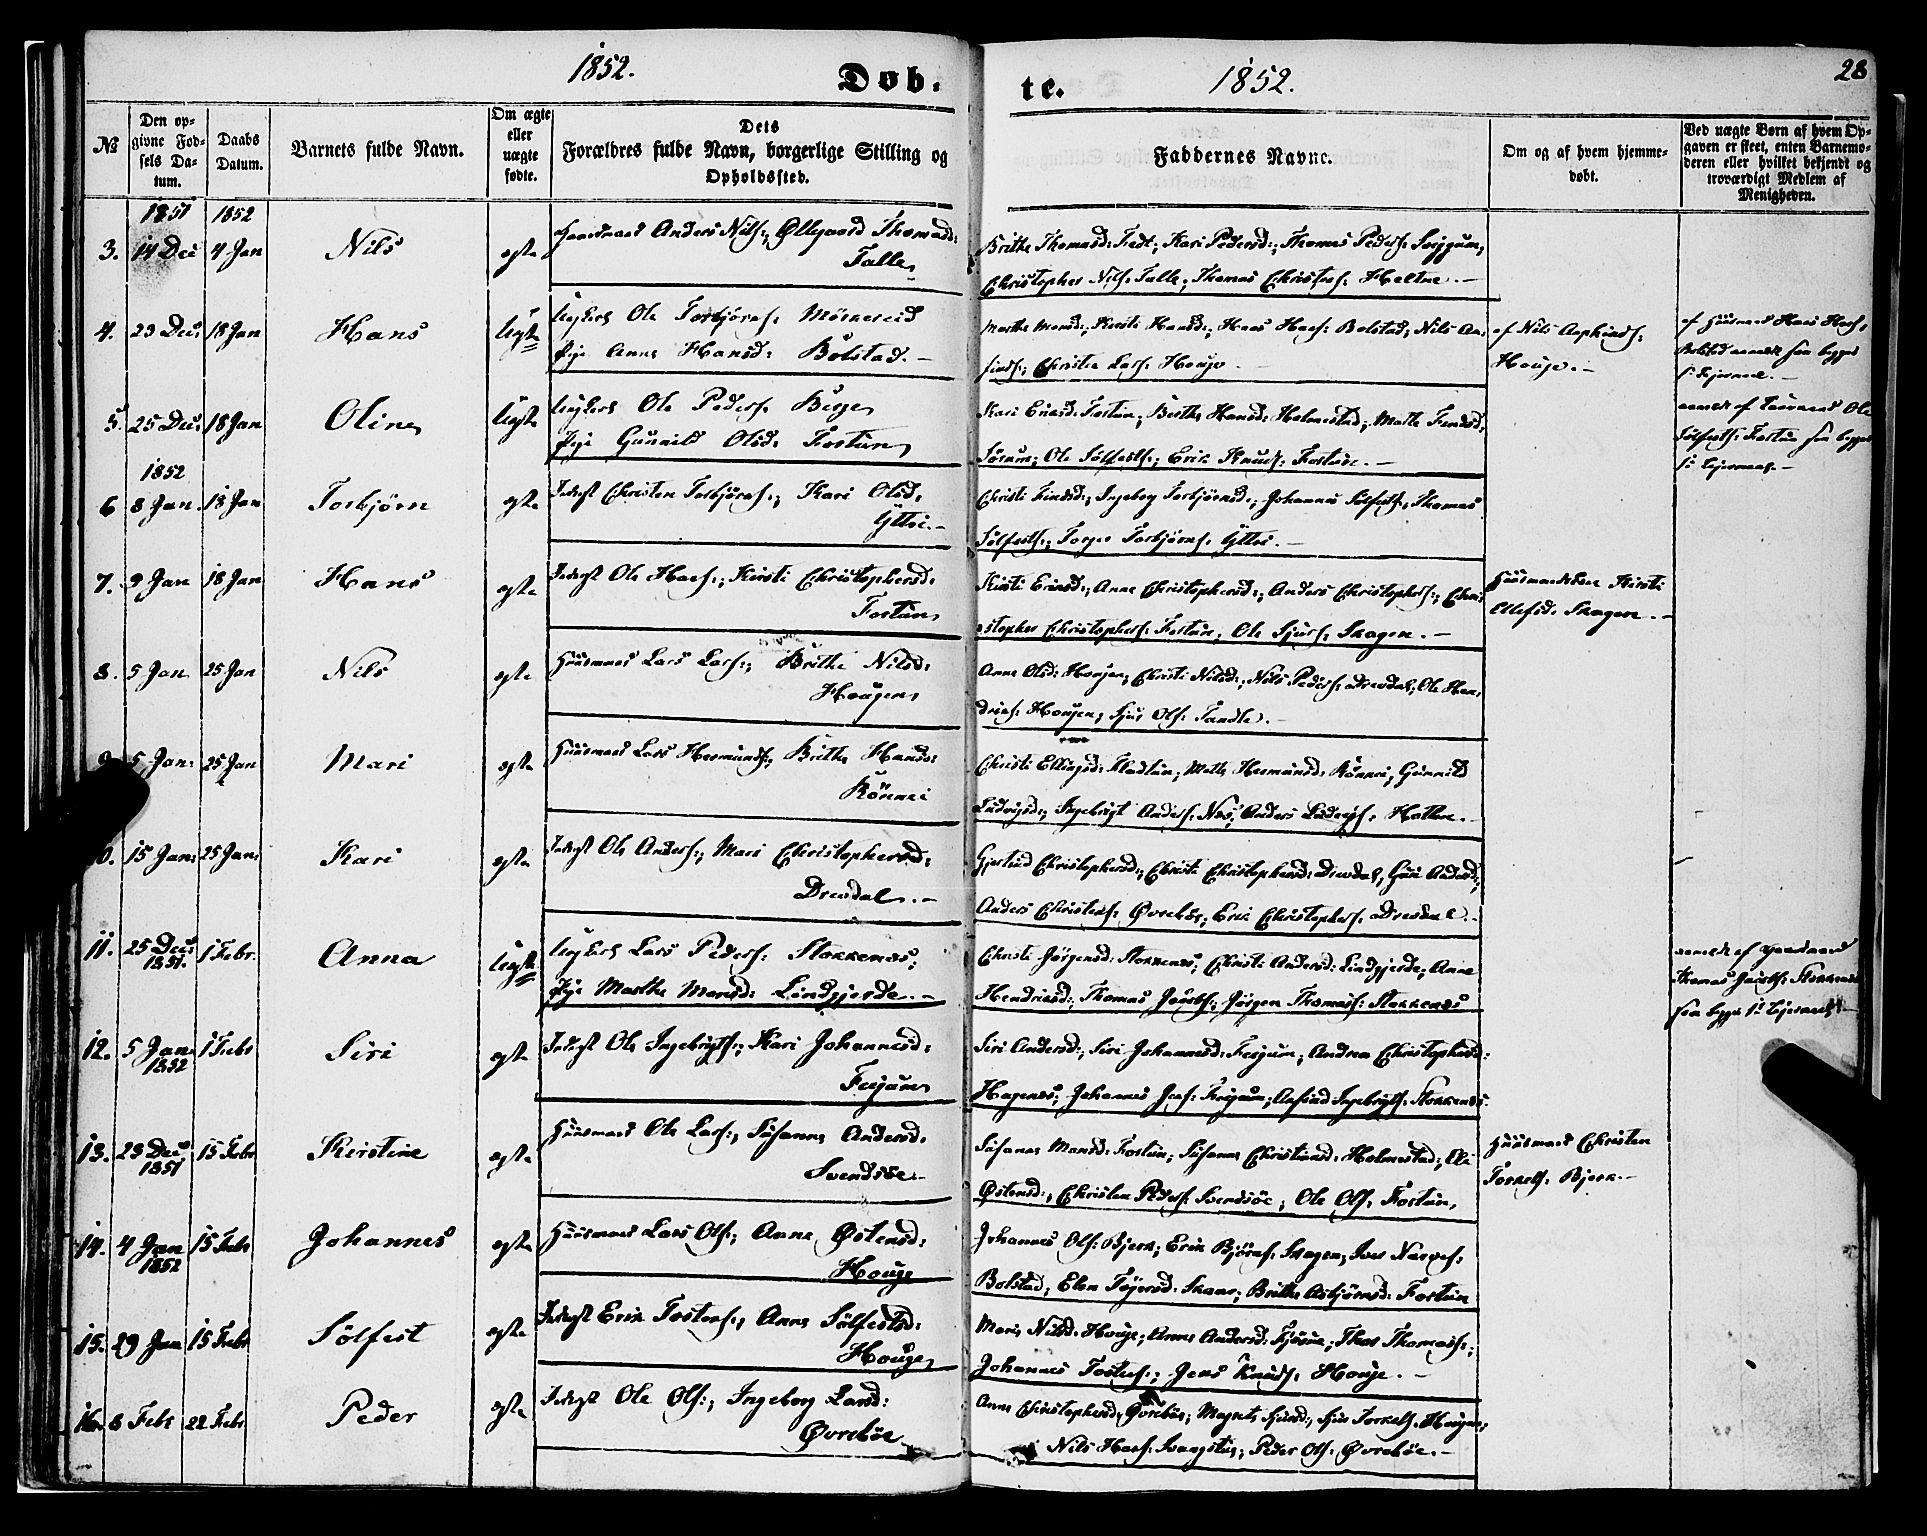 1852.
Døb-
te.
1852.
28
№
Den op-
givne Fød-
sels Da-
tum.
Daabs
Datum.
Barnets fulde Navn.
Om ægte
eller
uægte
fødte.
Dets
Forældres fulde Navn, borgerlige Stilling og
Opholdssted.
Faddernes Navne.
Om og af hvem hjemme-
døbt.
Ved uægte Børn af hvem Op-
gaven er skeet, enten Barnemo-
deren eller hvilket bekjendt og
troværdigt Medlem af
Menigheden.
1851
1852
3. 14 Dec 4 Jan Nils egte Gaardmand Anders Nils:, Øllegaard Thomasd:
Talle
Brithe Thomasd: Fedt; Kari Pedersd:, Thomas Peders:
Christopher Nils: Talle; Thomas Christens: Heltne.-
4. 23 Dec: 18 Jan Hans Uegte Ungkarl Ole Torbjørns: Mørkereid
Pige Anne Hansd: Bolstad.-
Marthe Monsd:, Kirsti Hansd:, Hans Hans: Bolstad; Nils An-
finds:, Christen Lars: Houge
af Nils
Houge.-
af Huusmand Hans Hans:
Bolstad
5. 25 Dec: 18 Jan Oline Uegte Ungkarl Ole Peders: Berge
Pige Gunnild Olsd: Fortun
Kari Eriksd: Fortun; Berthe Hansd: Holmestad; Marthe
Ole Sølfests:, Erik Knuds: Fortun.-
Ole
Sølfests: Fortun
1852
6 8 Jan. 18 Jan Torbjørn egte Inderst Christen Torbjørns:, Kari Olsd:
Yttri.-
Christi Findsd:, Ingeborg Torbjørnsd:, Johannes Sølfests:, Thomas
Sølfests:, Torger Torbjørns: Yttri.-
7. 9 Jan 18 Jan Hans egte Inderst Ole Hans:, Kirsti Christophersd:
Fortun
Kirsti Eriksd:, Anne Christophersd:, Anders Christophers:, Chri-
stopher Christophers: Fortun, Ole Sjurs: Skagen.-
Kirsti
Skagen.-
8. 5 Jan 25 Jan Nils egte Huusmand Lars Lars:, Brithe Nilsd:
Hougen
Anne Olsd: Hougen; Christi Nilsd:, Nils Peders: Drevdal; Ole Hen-
driks: Hougen; Sjur Ols:
9 5 Jan: 25 Jan Mari egte Huusmand Lars Hermunds:, Brithe Hansd:
Rønnei
Christi Ellingsd: Fladtun; Mette Hermundsd: Rønnei; Gunnild
Ludvigsd:, Ingebrigt Anders: Næs; Anders Ludvigs:
10. 15 Jan: 25 Jan: Kari egte Inderst Ole Anders:, Mari Christophersd:
Drevdal.-
Gjertrud Christophersd:, Christi Christophersd: Drevdal, Guri Andersd:,
Anders Christens: Øvrebøe; Erik Christophers: Drevdal.-
11. 25 Dec:
1851. 1 Febr. Anna Uegte Ungkarl Lars Peders: Stokkenæs;
Pige Marthe Monsd: Lindgjerde.-
Christi Jørgensd: Stokkenæs; Christi Andersd: Lindgjerde; Anne
Hendriksd:, Thomas Jacobs:, Jørgen Thomas: Stokkenæs
Thomas Jacobs: Stokkenæs
12. 5 Jan
1852 1 Febr Siri egte Inderst Ole Ingebrigts:, Kari Johannesd:
Feigum
Siri Andersd:, Siri Johannesd: Feigum; Andrea Christophersd:
Hagenæs; Johannes Feigum; Ingebrigts: Stokkenæs
13. 23 Dec
1851 15 Febr Kirstine egte Huusmand Ole Lars:, Susanne Andersd:
Svendsøe
Susanne Monsd: Fortun; Susanne Christensd: Holmestad; Eli
Østensd:, Christen Peders: Svendsøe; Ole Ols: Fortun,
Huusmand Christen
Torkels: Bjerk.-
14. 4 Jan
1852 15 Febr Johannes egte Huusmand Lars Ols:, Anne Østensd:
Houge
Johannes Ols: Bjerk; Erik Bjørns: Skagen; Iver
Bolstad; Elen Brithe Asbjørnsd: Fortun
15. 29 Jan 15 Febr Sølfest egte Inderst Erik Tostens:, Anne Sølfestsd:
Houge
Mari Nilsd: Houge; Anne Andersd: Thomas:;
Johannes Tostens:, Jens Knuds: Houge.-
16. 8 Febr 22 Febr Peder egte Inderst Ole Ols:, Ingeborg Larsd:
Øvrebøe
Anne Christophersd: Øvrebøe; Sjur Torkels: Hougen;
Nils Hans: Peder Ols: Øvrebøe.-